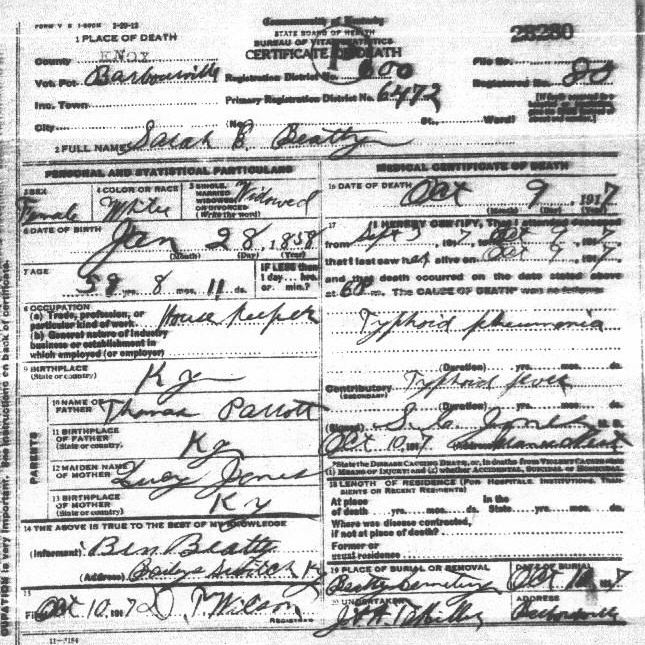 FORM V S 1-500M 2-20-12
Commonwealth of Kentucky
STATE BOARD OF HEALTH
BUREAU OF VITAL STATISTICS
CERTIFICATE OF DEATH
28280
1 PLACE OF DEATH
County KNOX
Vot. Pct. Barbourville
Registration District No. 600
File No.
Inc. Town
Primary Registration District No. 6472
Registered No. 80
City
(No. St., Ward)
2 FULL NAME Sarah E. Beatty
PERSONAL AND STATISTICAL PARTICULARS
3 SEX
Female
4 COLOR OR RACE
White
5 SINGLE, MARRIED, WIDOWED OR DIVORCED (Write the word)
Widowed
6 DATE OF BIRTH
Jan 28, 1858
(Month) (Day) (Year)
7 AGE
59 yrs. 8 mos. 11 ds.
IF LESS than 1 day... hrs. or. min.?
8 OCCUPATION
(a) Trade, profession, or particular kind of work
House keeper
(b) General nature of industry business or establishment in which employed (or employer)
9 BIRTHPLACE
(State or country)
Ky
PARENTS
10 NAME OF FATHER
Thomas Parrott
11 BIRTHPLACE OF FATHER
(State or country)
Ky
12 MAIDEN NAME OF MOTHER
Lucy Jones
13 BIRTHPLACE OF MOTHER
(State or country)
Ky
14 THE ABOVE IS TRUE TO THE BEST OF MY KNOWLEDGE
(Informant) Ben Beatty
(Address) Baileys Switch Ky
15
Filed Oct 10, 1917 D. T. Wilson
REGISTRAR
11-3184
MEDICAL CERTIFICATE OF DEATH
16 DATE OF DEATH
Oct 9, 1917
(Month) (Day) (Year)
17 I HEREBY CERTIFY, That I attended deceased
from Sept 3, 1917, to Oct 9 1917
that I last saw her alive on Oct 9 1917
and that death occurred on the date stated above
at 6 P m. The CAUSE OF DEATH was as follows:
Typhoid pneumonia
(Duration) yrs. mos. ds.
Contributory Typhoid fever
(SECONDARY)
(Duration) yrs. mos. ds.
(Signed) M. D.
Oct 10, 1917 (Address)
*State the DISEASE CAUSING DEATH, or, in deaths from VIOLENT CAUSES
(1) MEANS OF INJURY; and (2) whether ACCIDENTAL, SUICIDAL or HOMICIDAL
18 LENGTH OF RESIDENCE (FOR HOSPITALS, INSTITUTIONS, TRANSIENTS OR RECENT RESIDENTS)
At place of death yrs. mos. ds.
In the State yrs. mos. ds.
Where was disease contracted, if not at place of death?
Former or usual residence
19 PLACE OF BURIAL OR REMOVAL
Beatty Cemetery
DATE OF BURIAL
Oct 10 1917
20 UNDERTAKER
ADDRESS
Barbourville
OUPATION is very important. See instructions on back of certificate.